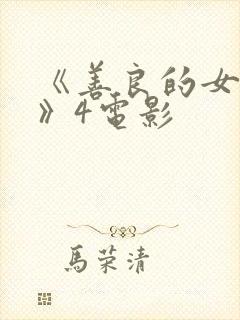 《善良的女
》4電影
馬荣清